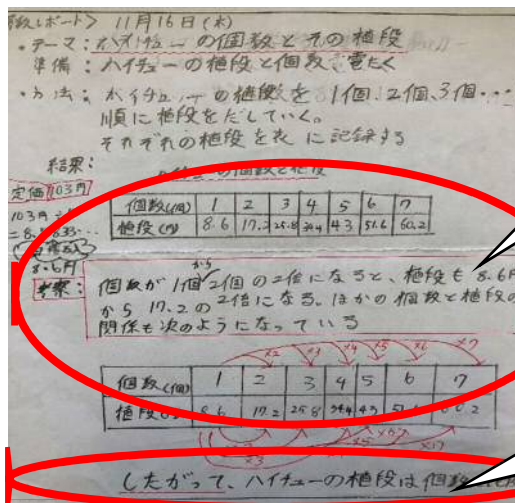 算数レポート> 11月16日(水)
・テーマ:ハイチューの個数とその値段
準備:ハイチューの値段と個数、電たく
・方法:ハイチューの値段を1個、2個、3個・・・
順に値段をだしていく。
それぞれの値段を表に記録する
結果:
の個数と
定価103円
個数(個) 1 2 3 4 5 6 7
値段(円) 8.6 17.2 25.8 34.4 43 51.6 60.2
103円
8.6円
考察:個数が1個から2個の2倍になると、値段も8.6円
から17.2の2倍になる。ほかの個数と値段の
関係も次のようになっている
×2 ×3 ×4 ×5 ×6 ×7
個数(個) 1 2 3 4 5 6 7
値段 8.6 17.2 25.8 34.4 43
×3 ×5 ×7
したがって、ハイチューの値段は個数